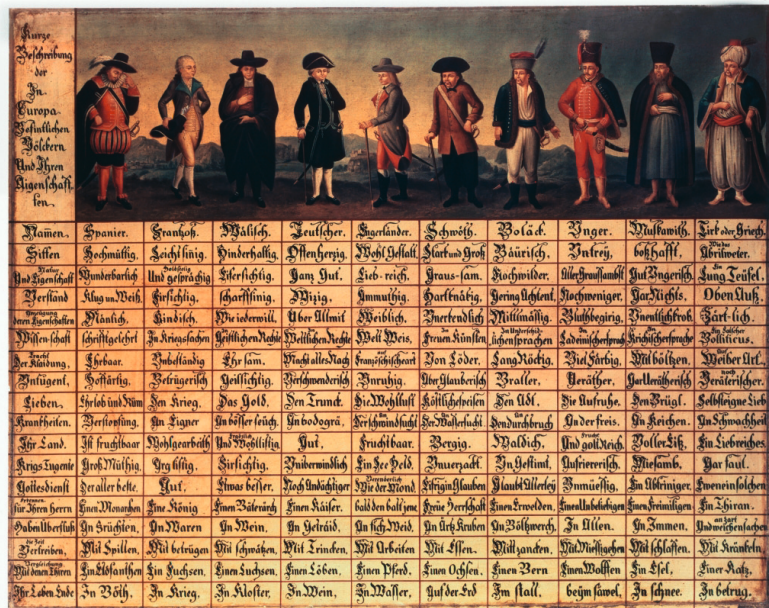 Kurze
Beschreibung
der
In
Europa
Befintlichen
Völckern
Und Ihren
Aigenschaff,
ten.
Namen. Spanier. Frantzoß. Wälisch. Teutscher. Engerländer. Schwöth. Boläck. Vnger. Muskawith. Tirk oder Griech.
Sitten Hochmüttig, Leicht sinig, Hinderhaltig, Offenherzig, Wohl Gestalt, Stark und Groß Bäurisch, Untrey, boßhafft, Abrilweter.
Und Eigenschaft Wunderbarlich Und gesprächig Eifersichtig, Ganz Gut, Lieb-reich, Graus-sam, Gut Ungerisch, Lung Teüfel.
Verstand Klug un Weiß, Firsichtig, scharffsinig, Wizig, Ammuthig, Hartknäbig, Gering Achtent, Nochweniger, Gar Nichts, Oben Auß,
deren Eigenschaften Mänlich, Kindisch, Wie iederwill, Über Allmit Weiblich, Unerkendlich Mittlmäsig, Bluthbegirig, Zärt-lich.
Wissenschaft schrifftgelehrt In Kriegssachen Geistlichen Rechte Weltlichen Rechte Welt Weis, Freuen Künsten
Der Klaidung, Ehrbaar, Unbeständig Ehrsam, Macht alles Nach Französischeart Von Löder, Lang Röckig, Viel Färbig, Mit böltzen, Weiber Art,
Untugent, Hoffärtig, Betrügerisch Geillsichtig, Verschwenderisch Unruhig, Über Glauberisch Braller, Veräther, Verätherischer.
Lieben, Ehrlob und Rüm Den Krieg, Das Gold, Den Trunck, Die Wohllust Köstlichespeisen Den Adl, Die Aufruhe, Den Brügl,
Krankheiten, Verstopfung, An Eigner An bösser seüch, An bodogrä, Der Wassersucht Den durchbruch An der freis, An Keichen, An Schwachheit
Ihr Land. Ist fruchtbaar Wohlgearbeith Und Wohllistig Gut, Fruchtbaar, Bergig, Waldich, Und golt Reich, Voller Eiß, Ein Liebreiches
Krigs Tugente Groß Müthig, Arg listig, Firsichtig, Uniberwindlich Ein See Held, Unverzackt, Un Gestimt, Aufriererisch, Miesamb, Gar faul,
Gottesdienst Der aller beste, Gut, Etwas besser, Noch Andächtiger Wie der Mond, Eifrig in Glauben Glaubt Allerley Unmüessig, Ein Abtriniger, Eweneinsolchen
für Ihren Herrn Einen Monarchen Eine König Einen Käiser, bald den bald jene Freüe Herrschaft Einen Erwelden, Einen Unbeliebigen Einen Freimiligen Ein Thiran,
Haben Überfluß An Früchten, An Waren An Wein, An Getraid, An sich Weid, An Böltzwerch, In Allen, An Immen, And weichen sachen
Vertreiben, Mit Spillen, Mit betrügen Mit schwätzen, Mit Trincken, Mit Arbeiten Mit Essen, Mit zancken, Mit Miessigehen Mit schlaffen, Mit Kränkeln,
Mit denen Thiren Ein Elofanthen Ein Fuchsen, Einen Luchsen, Einen Löben, Einen Pferd, Einen Ochsen, Einen Bern Einen Wolffen Ein Esel, Einer Katz,
Ihr Leben Ende In Böth, In Krieg, In Kloster, In Wein, In Wasser, Auf der Erd Im stall, beym säwel, In schnee, In betrug,